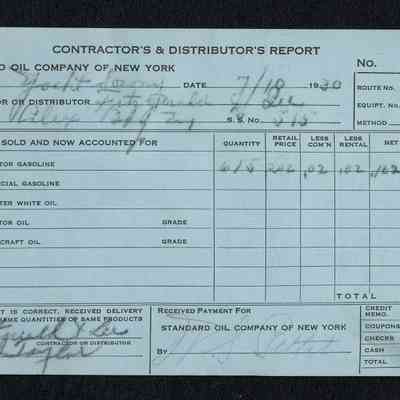 CONTRACTOR'S & DISTRIBUTOR'S REPORT
D OIL COMPANY OF NEW YORK No.
Yacht DATE 7/18 1930 ROUTE NO.
OR OR DISTRIBUTOR & Lee EQUIPT. NO.
Riley S.S. No. 515 METHOD
SOLD AND NOW ACCOUNTED FOR QUANTITY RETAIL PRICE LESS COM'N LESS RENTAL NET
TOR GASOLINE 615 .202 .02 .02 .162
CIAL GASOLINE
TER WHITE OIL
TOR OIL GRADE
CRAFT OIL GRADE
TOTAL
T IS CORRECT, RECEIVED DELIVERY
AME QUANTITIES OF SAME PRODUCTS
& Lee
CONTRACTOR OR DISTRIBUTOR
Taylor
RECEIVED PAYMENT FOR
STANDARD OIL COMPANY OF NEW YORK
BY
CREDIT MEMO.
COUPONS
CHECKS
CASH
TOTAL